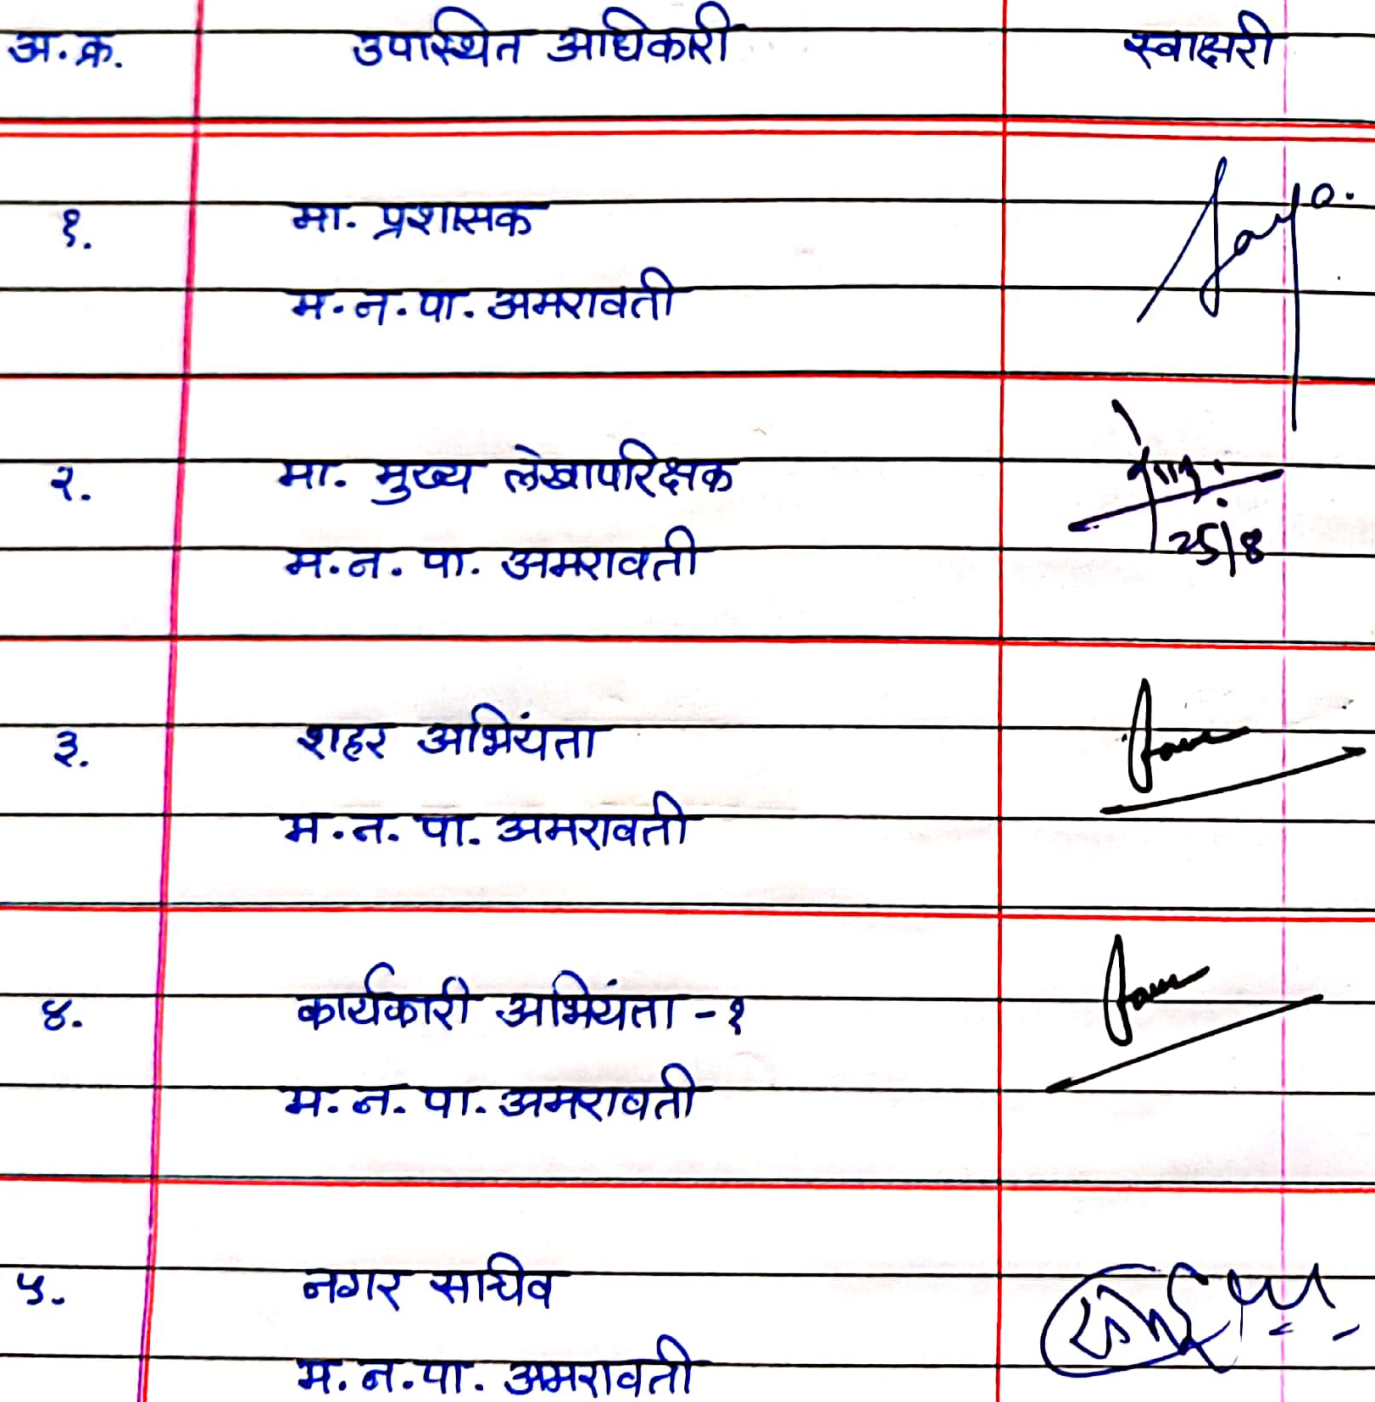 अ.क्र. उपास्थित आधिकारी स्वाक्षरी
१. मा. प्रशासक
म.न.पा. अमरावती
२. मा. मुख्य लेखापरिक्षक
25/8
म.न. पा. अमरावती
३. शहर अभियंता
म.न. पा. अमरावती
४. कार्यकारी अभियंता -१
म.न. पा. अमरावती
५. नगर साचिव
म.न.पा. अमरावती